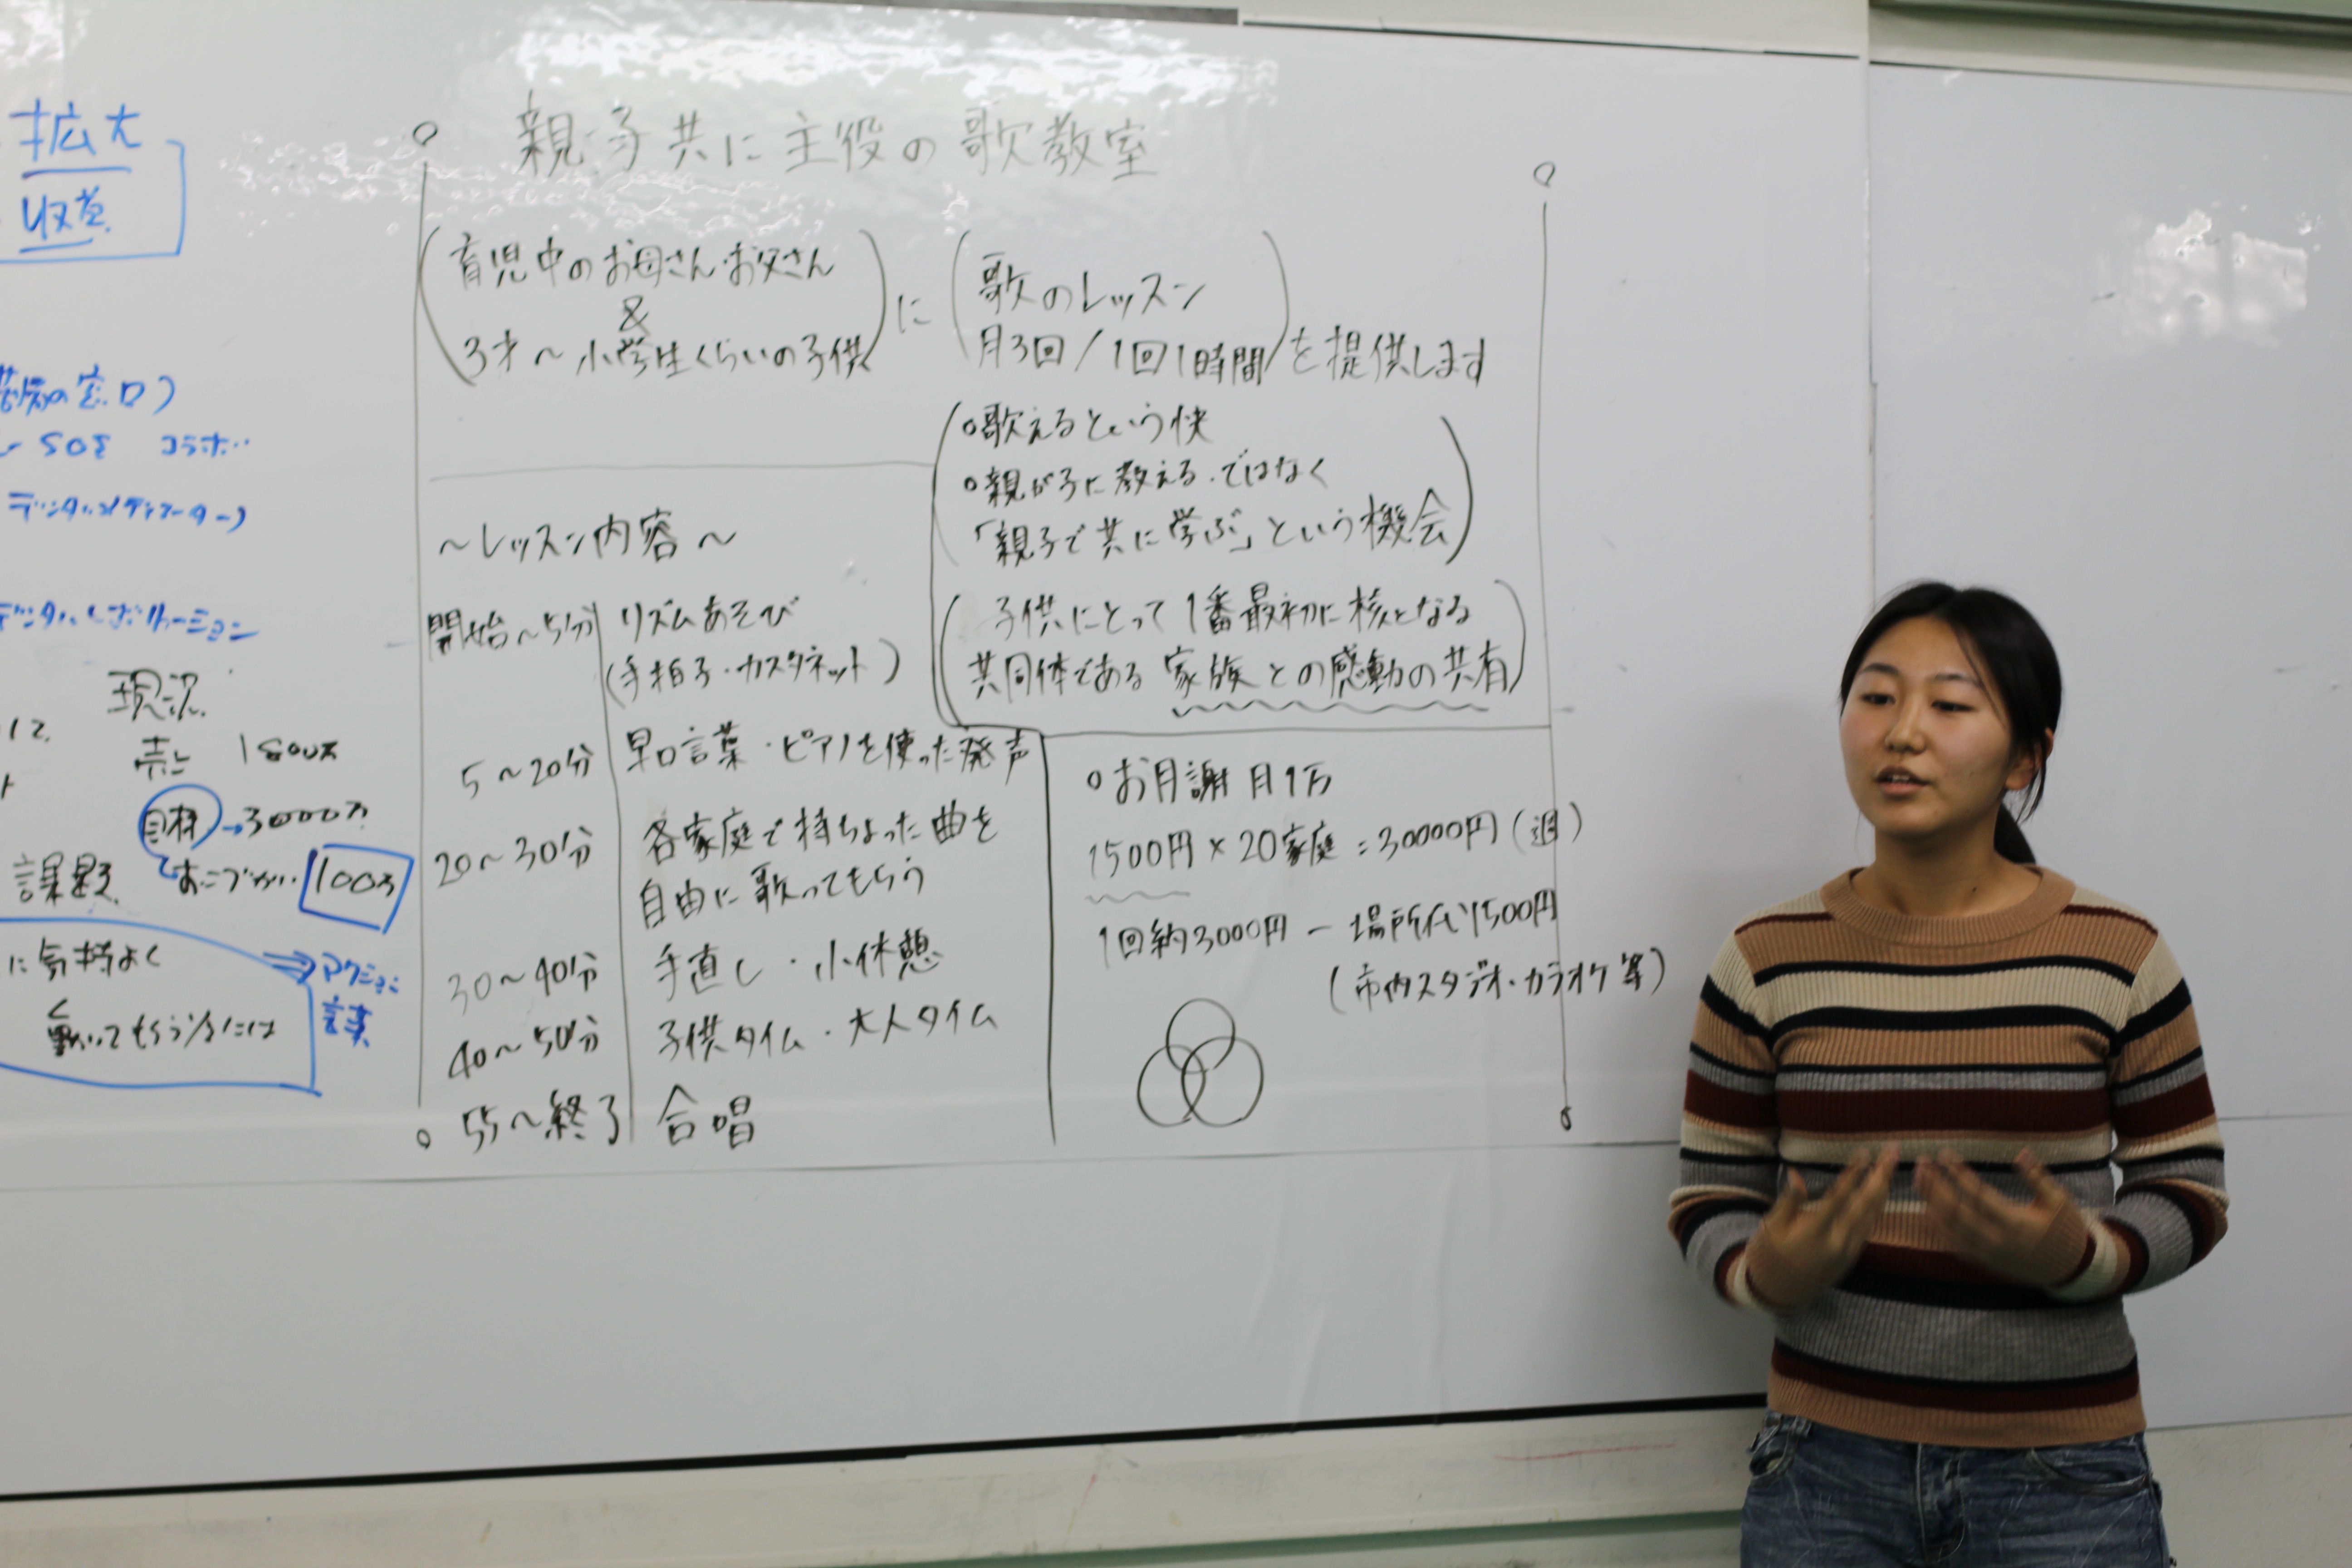 拡大
収益
の窓口)
コラボ
現況
売上 1800万
目標→3000万
課題
おこづかい 100万
に気持よく
動いてもらうには
⇒アクション
言葉
親・子共に主役の歌教室
育児中のお母さん・お父さん
&
3才～小学生くらいの子供
に
歌のレッスン
月3回/1回1時間
を提供します
○歌えるという快
○親が子に教える.ではなく
「親子で共に学ぶ」という機会
子供にとって1番最初に核となる
共同体である家族との感動の共有
～レッスン内容～
開始～5分 リズムあそび
(手拍子・カスタネット)
5～20分 早口言葉・ピアノを使った発声
20～30分 各家庭で持ちよった曲を
自由に歌ってもらう
30～40分 手直し・小休憩
40～50分 子供タイム・大人タイム
55～終了 合唱
○お月謝 月1万
1500円×20家庭=30000円(週)
1回約3000円－場所代1500円
(市内スタジオ・カラオケ等)